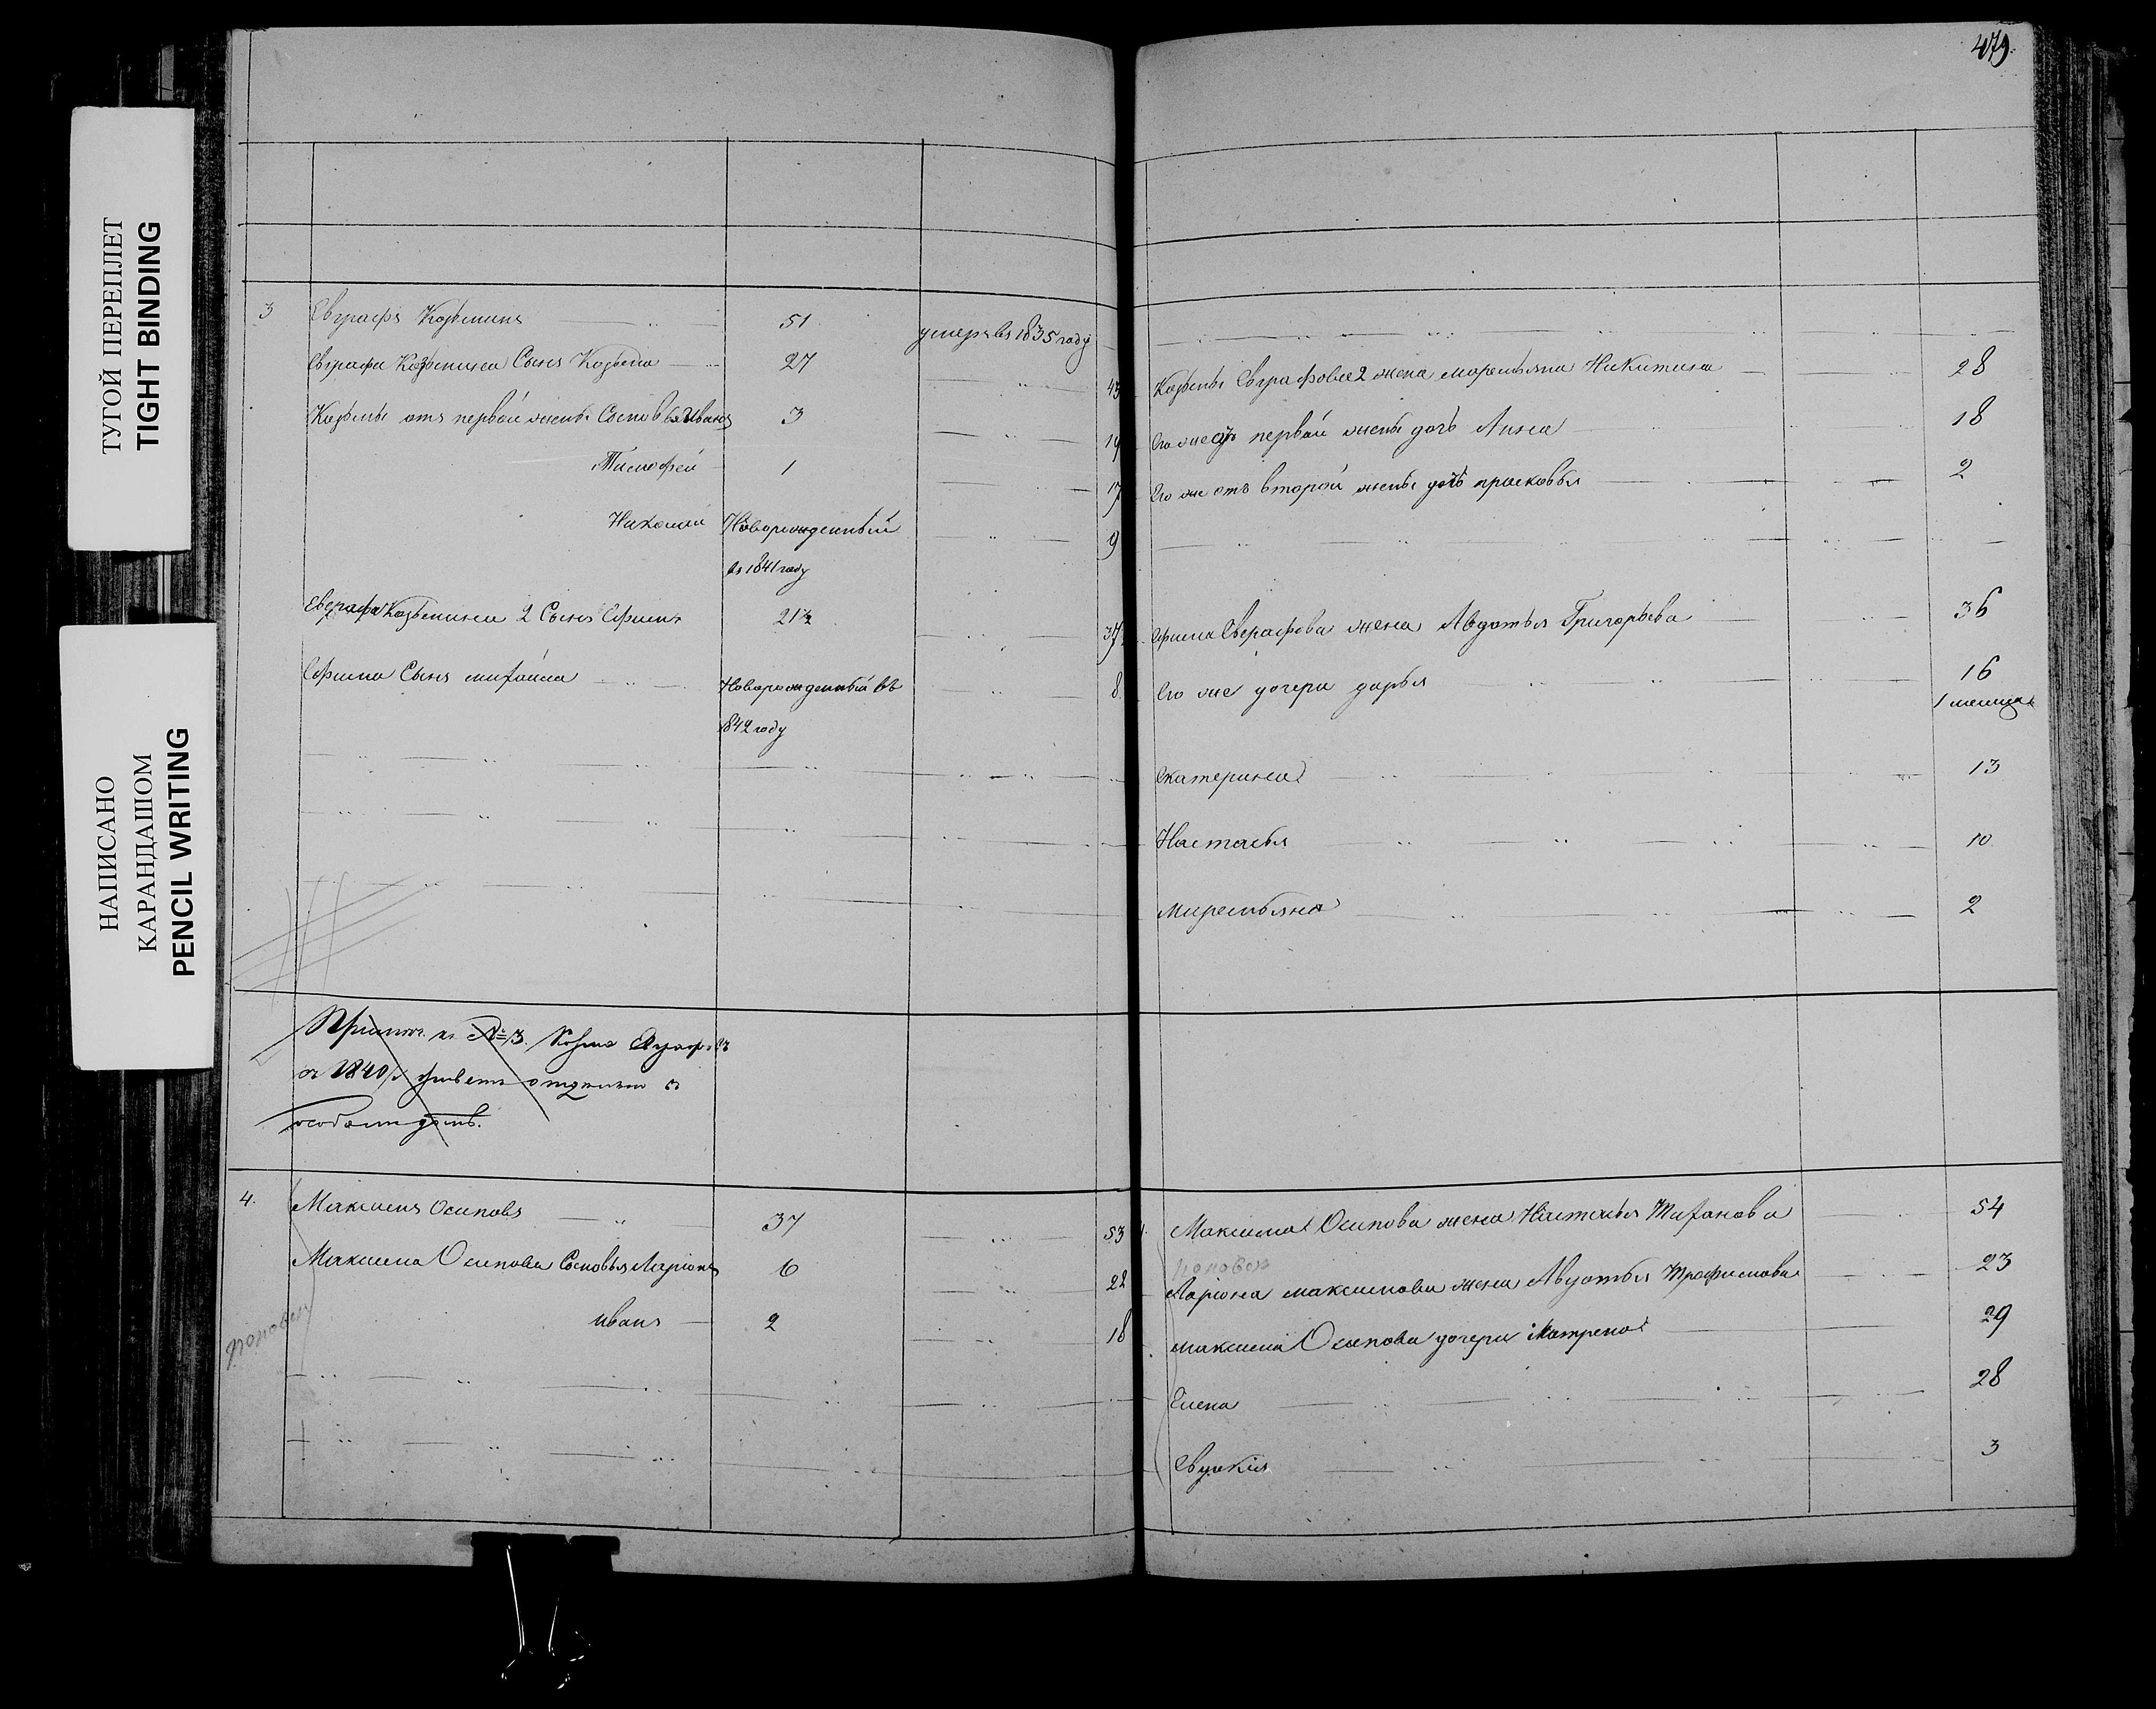 479.
ТУГОЙ ПЕРЕПЛЕТ
TIGHT BINDING
НАПИСАНО
КАРАНДАШОМ
PENCIL WRITING
3 Евграфъ Козьминъ 51 умеръ въ 1835 году
Евграфа Козьмина Сынъ Козьма 27 43
Козьмы отъ первой жены Сыновья Иванъ 3 19
Тимофей 1 17
Николай Новорожденный 9
въ 1841 году
Евграфа Козьмина 2 Сынъ Ефимъ 21½ 37
Ефима Сынъ михайла Новорожденный въ 8
1842 году
Козьмы Евграфова 2 жена маремьяна Никитина 28
Его же отъ первой жены дочь Анна 18
Его же отъ второй жены дочь прасковья 2
Ефима Евграфова жена Авдотья Григорьева 36
Его же дочери дарья 16
1 месица
Екатерина 13
Настасья 10
Миремьяна 2
къ №3. Козма
1840 живетъ отдельно
4. Максимъ Осиповъ 37 53
Максима Осипова Сыновья Ларионъ 6 22
иванъ 2 18
Максима Осипова жена Настасья Тиханова 54
Лариона максимова жена Авдотья Трофимова 23
максима Осипова дочери Матрена 29
Елена 28
Евдокия 3